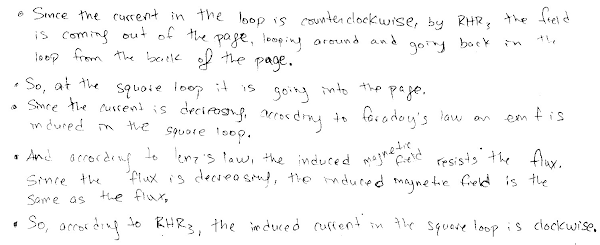 • Since the current in the loop is counterclockwise, by RHR3 the field
is coming out of the page, looping around and going back in the
loop from the back of the page.
• So, at the square loop it is going into the page.
• Since the current is decreasing, according to faraday's law an emf is
induced in the square loop.
• And according to lenz's law, the induced magnetic field resists the flux.
Since the flux is decreasing, the induced magnetic field is the
same as the flux,
• So, according to RHR3, the induced current in the square loop is clockwise.